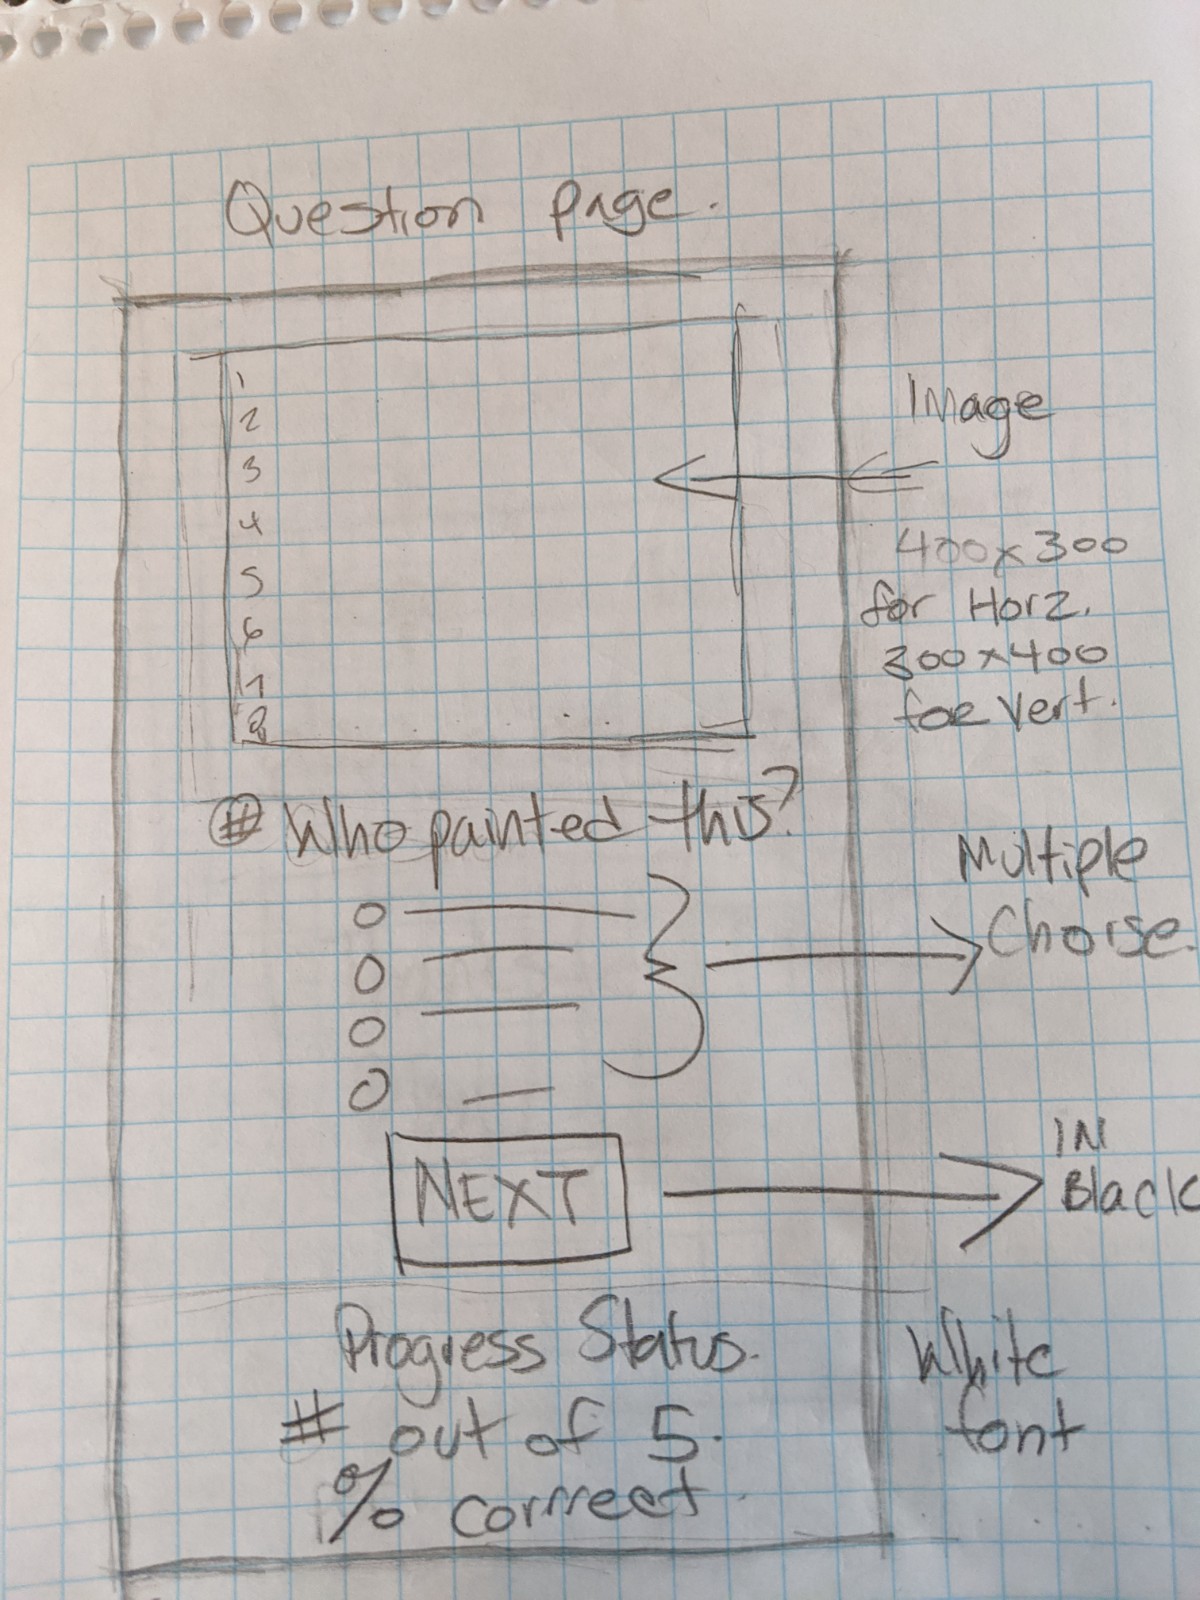 Question page.
1
2
3
4
5
6
7
8
Image
400x300
for Horz.
300x400
for Vert.
# Who painted this?
Multiple
Choise.
NEXT
IN
Black
White
font
Progress Status.
# out of 5.
% correct.